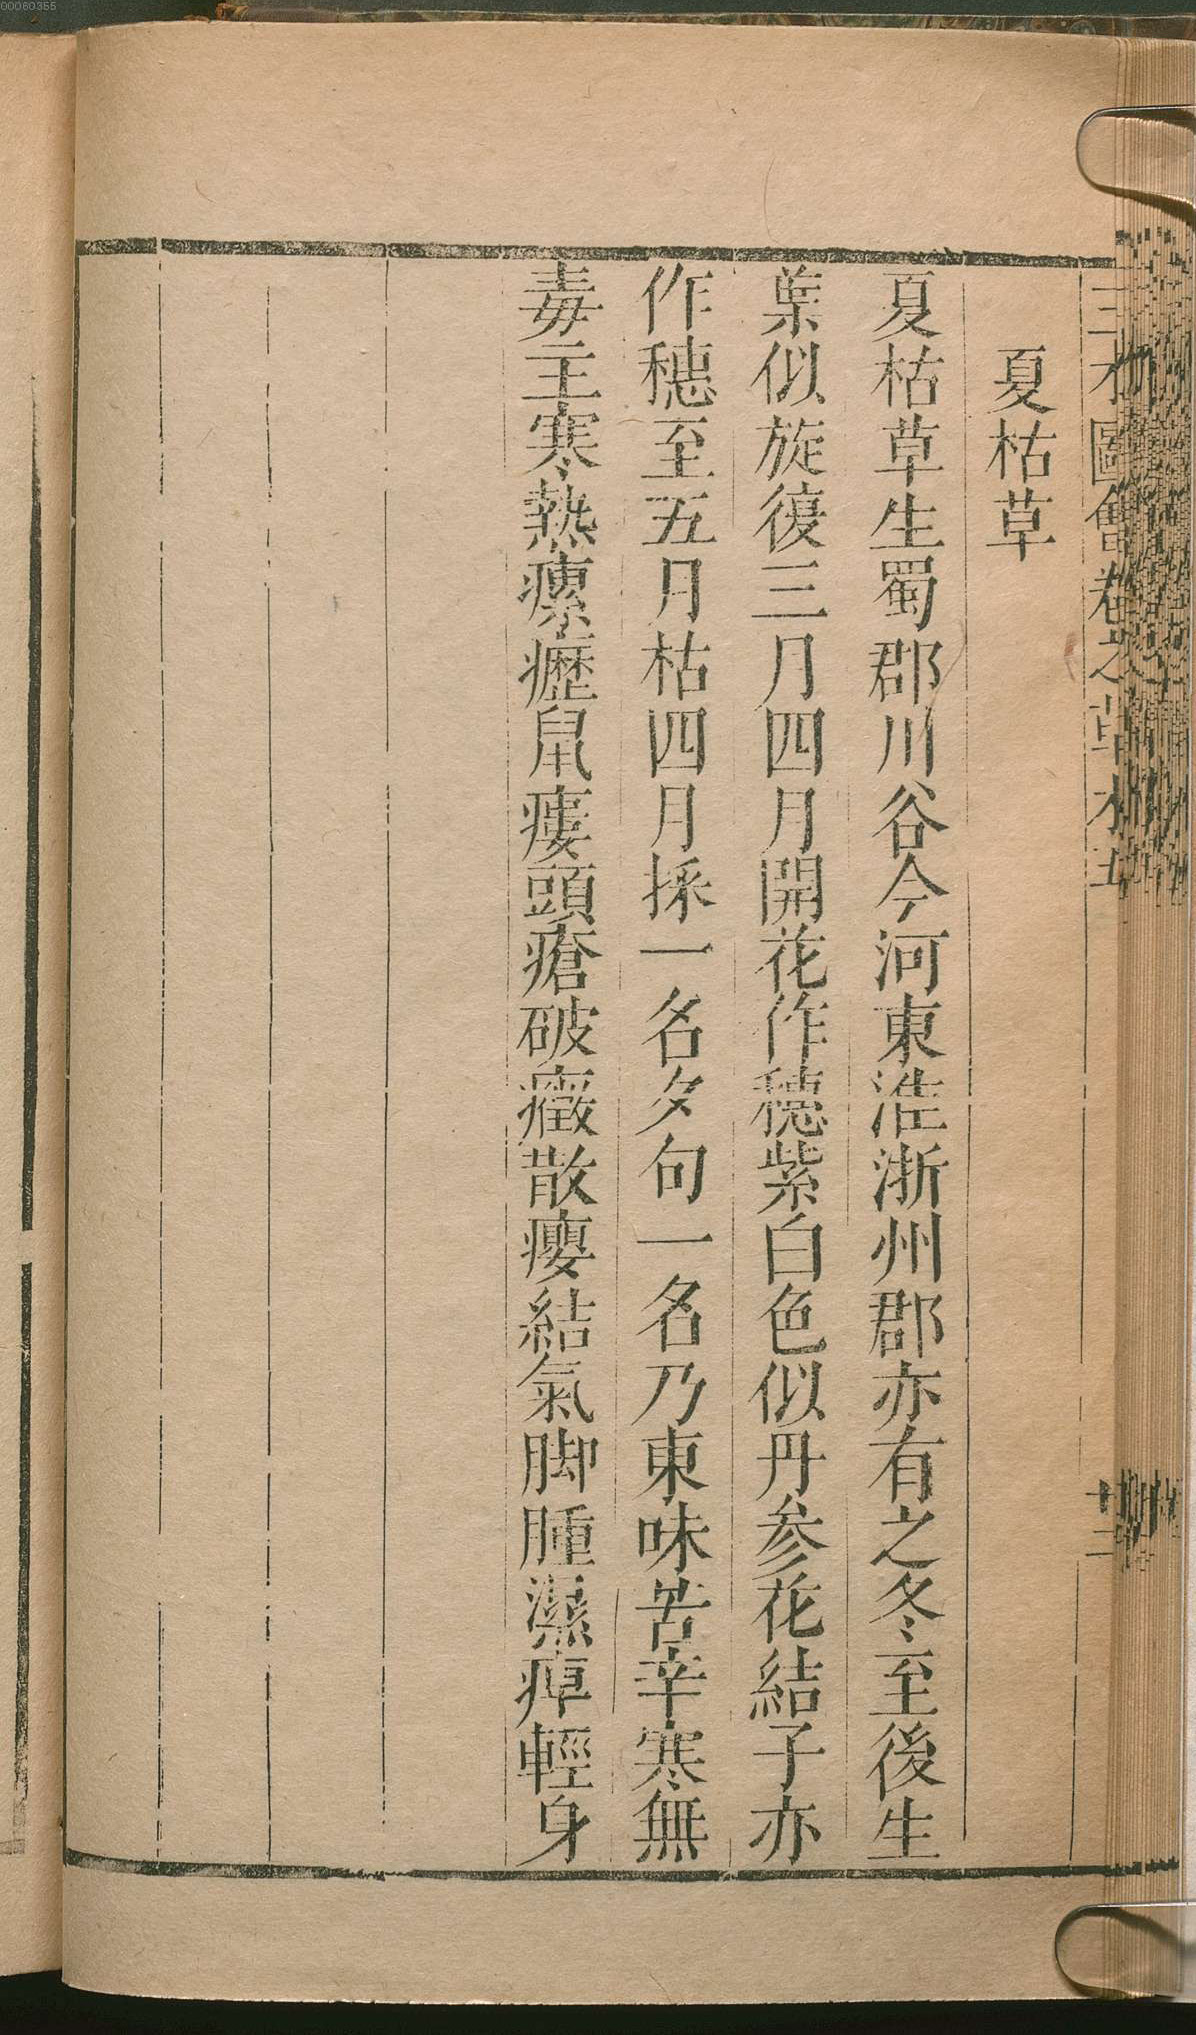 00060355
三才圖會卷之草木五
十二
夏枯草
夏枯草生蜀郡川谷今河東淮浙州郡亦有之冬至後生
葉似旋復三月四月開花作穗紫白色似丹参花結子亦
作穗至五月枯四月採一名夕句一名乃東味苦辛寒無
毒主寒熱瘰癧鼠瘻頭瘡破癥散癭結氣脚腫濕痺輕身